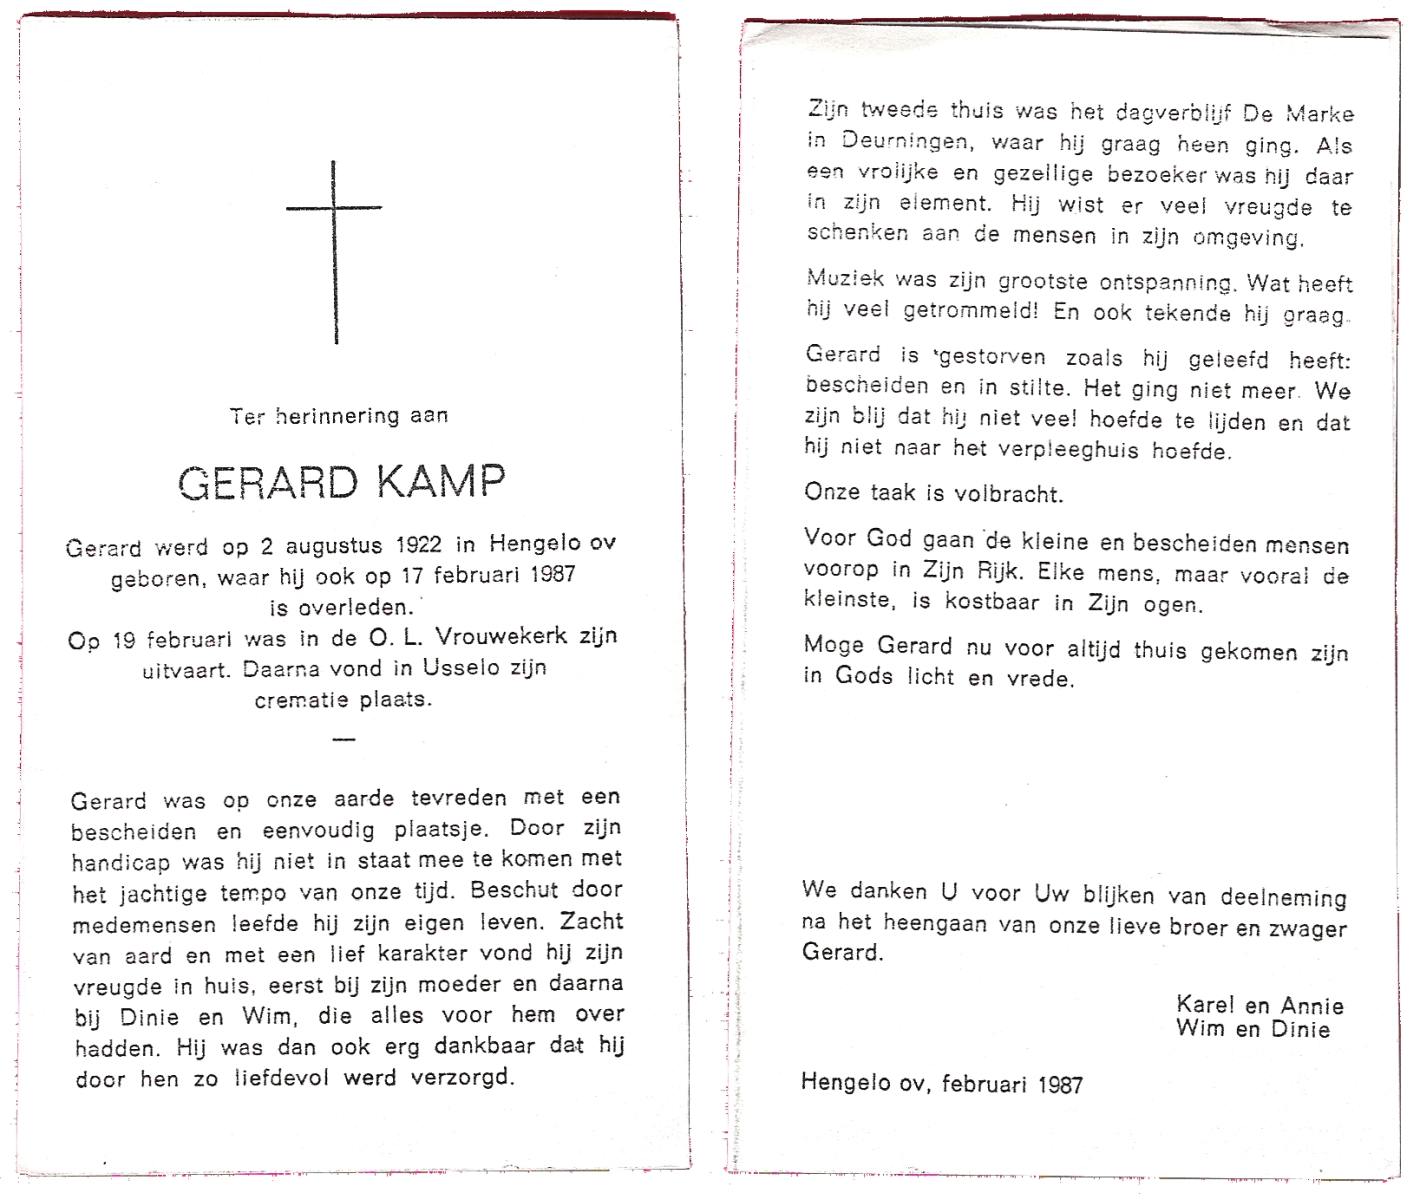 Ter herinnering aan
GERARD KAMP
Gerard werd op 2 augustus 1922 in Hengelo ov
geboren, waar hij ook op 17 februari 1987
is overleden.
Op 19 februari was in de O. L. Vrouwekerk zijn
uitvaart. Daarna vond in Usselo zijn
crematie plaats.
—
Gerard was op onze aarde tevreden met een
bescheiden en eenvoudig plaatsje. Door zijn
handicap was hij niet in staat mee te komen met
het jachtige tempo van onze tijd. Beschut door
medemensen leefde hij zijn eigen leven. Zacht
van aard en met een lief karakter vond hij zijn
vreugde in huis, eerst bij zijn moeder en daarna
bij Dinie en Wim, die alles voor hem over
hadden. Hij was dan ook erg dankbaar dat hij
door hen zo liefdevol werd verzorgd.
Zijn tweede thuis was het dagverblijf De Marke
in Deurningen, waar hij graag heen ging. Als
een vrolijke en gezellige bezoeker was hij daar
in zijn element. Hij wist er veel vreugde te
schenken aan de mensen in zijn omgeving.
Muziek was zijn grootste ontspanning. Wat heeft
hij veel getrommeld! En ook tekende hij graag.
Gerard is gestorven zoals hij geleefd heeft:
bescheiden en in stilte. Het ging niet meer. We
zijn blij dat hij niet veel hoefde te lijden en dat
hij niet naar het verpleeghuis hoefde.
Onze taak is volbracht.
Voor God gaan de kleine en bescheiden mensen
voorop in Zijn Rijk. Elke mens, maar vooral de
kleinste, is kostbaar in Zijn ogen.
Moge Gerard nu voor altijd thuis gekomen zijn
in Gods licht en vrede.
We danken U voor Uw blijken van deelneming
na het heengaan van onze lieve broer en zwager
Gerard.
Karel en Annie
Wim en Dinie
Hengelo ov, februari 1987